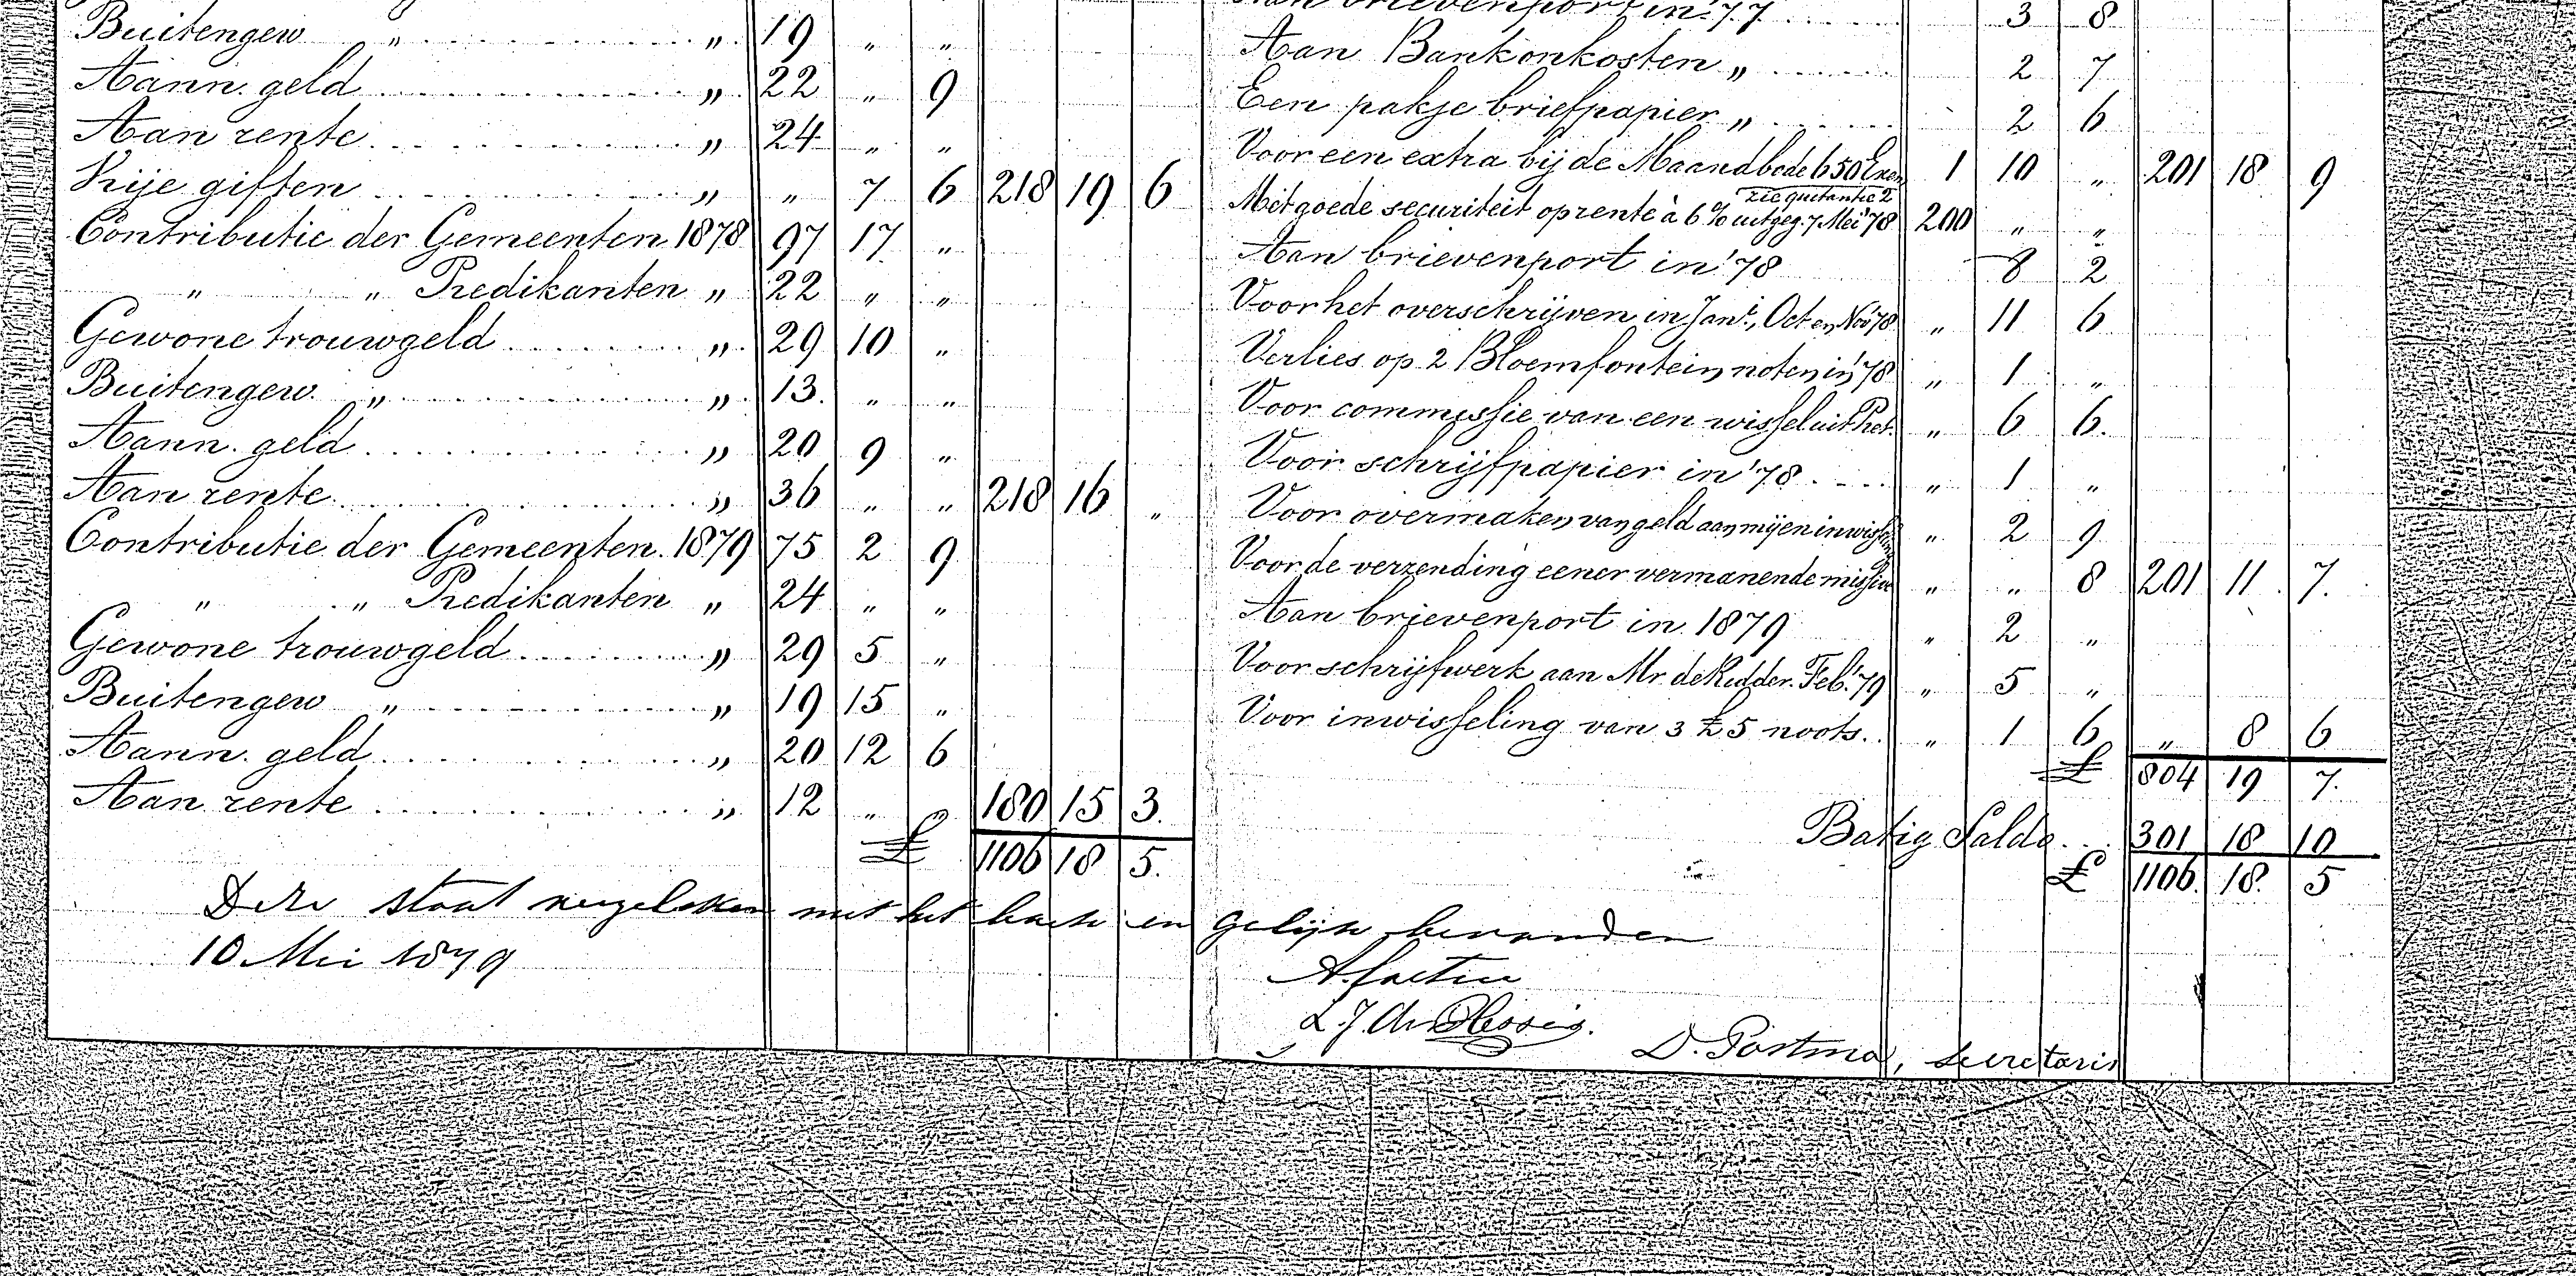 Buitengew " . . . . " 19 " "
Aann. geld . . . . " 22 " 9
Aan rente . . . . " 24 " "
Vrije giften . . . . " " 7 6 218 19 6
Contributie der Gemeenten 1878 97 17 "
" " Predikanten " 22 " "
Gewone trouwgeld . . . . " 29 10 "
Buitengew. " . . . . " 13. " "
Aann. geld . . . . " 20 9 "
Aan rente . . . . " 36 " " 218 16 "
Contributie der Gemeenten. 1879 75 2 9
" " Predikanten " 24 " "
Gewone trouwgeld . . . . " 29 5 "
Buitengew " . . . . " 19 15 "
Aann. geld . . . . " 20 12 6
Aan rente . . . . " 12 " " 180 15 3.
£ 1106 18 5.
Aan brievenport in '77 . . . . 3 8
Aan Bankonkosten " . . . . 2 7
Een pakje briefpapier " . . . . 2 6
Voor een extra bij de Maandbode 650 Exem 1 10 " 201 18 9
zie quitantie 2
Met goede securiteit op rente à 6 % uitgeg. 7 Mei '78 200 " "
Aan brievenport in '78 8 2
Voor het overschrijven in Jan., Oct en Nov '78 " 11 6
Verlies op 2 Bloemfontein noten in '78 " 1 "
Voor commissie van een wissel uit Pret. " 6 6.
Voor schrijfpapier in '78 . . . . " 1 "
Voor overmaken van geld aan mij en inwisseling " 2 9
Voor de verzending eener vermanende missive " " 8 201 11 7.
Aan brievenport in 1879 " 2 "
Voor schrijfwerk aan Mr de Ridder. Feb. '79 " 5 "
Voor inwisseling van 3 £5 noots. . " 1 6 " 8 6
£ 804 19 7.
Batig Saldo . . . 301 18 10
£ 1106. 18. 5
Deze staat vergeleken met het boek en gelijk bevonden
10 Mei 1879
L. J. du Plessis.
D. Postma, secretaris